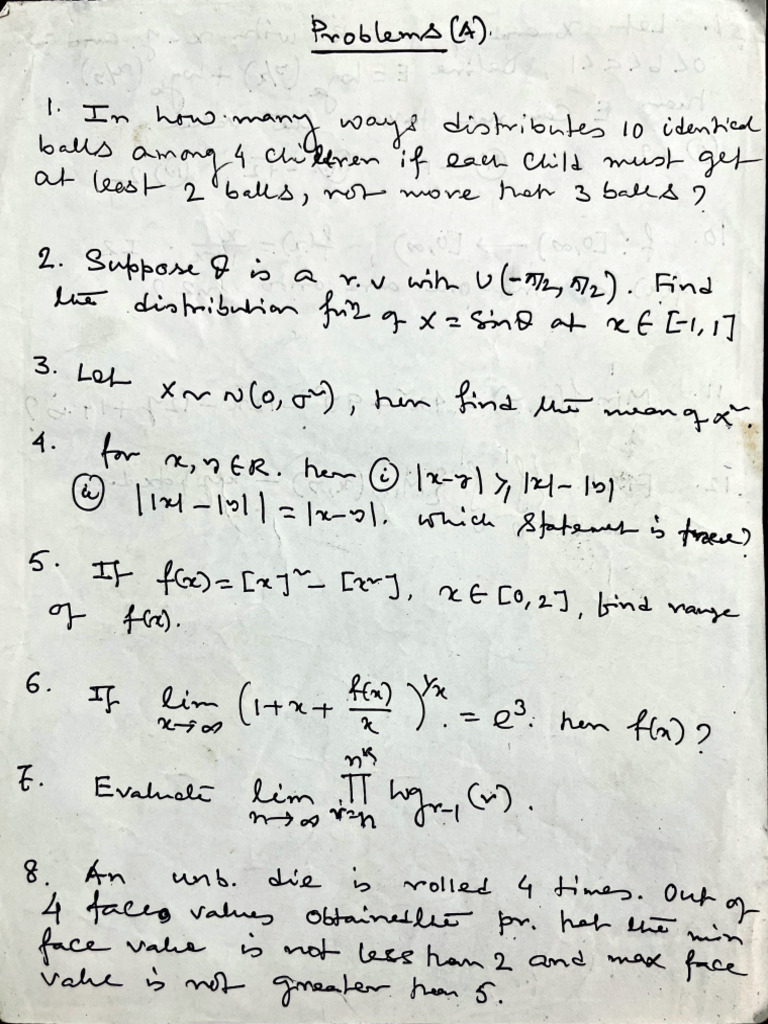 Problems (A).
1. In how many ways distributes 10 identical
balls among 4 children if each child must get
at least 2 balls, not more than 3 balls?
2. Suppose θ is a r.v with U(-π/2, π/2). Find
the distribution fun of X = sinθ at x ∈ [-1, 1]
3. Let X ~ N(0, σ²), then find the mean of x².
4. for x, y ∈ R. then (i) |x-y| ≥ |x| - |y|
(ii) ||x| - |y|| = |x-y|. which statement is true?
5. If f(x) = [x]² - [x²], x ∈ [0, 2], find range
of f(x).
6. If lim x→∞ (1 + x + f(x)/x)^(1/x) = e³. then f(x)?
7. Evaluate lim n→∞ ∏ r=n to n^k log_{r-1}(r).
8. An unb. die is rolled 4 times. Out of
4 face values obtained the pr. that the min
face value is not less than 2 and max face
value is not greater than 5.